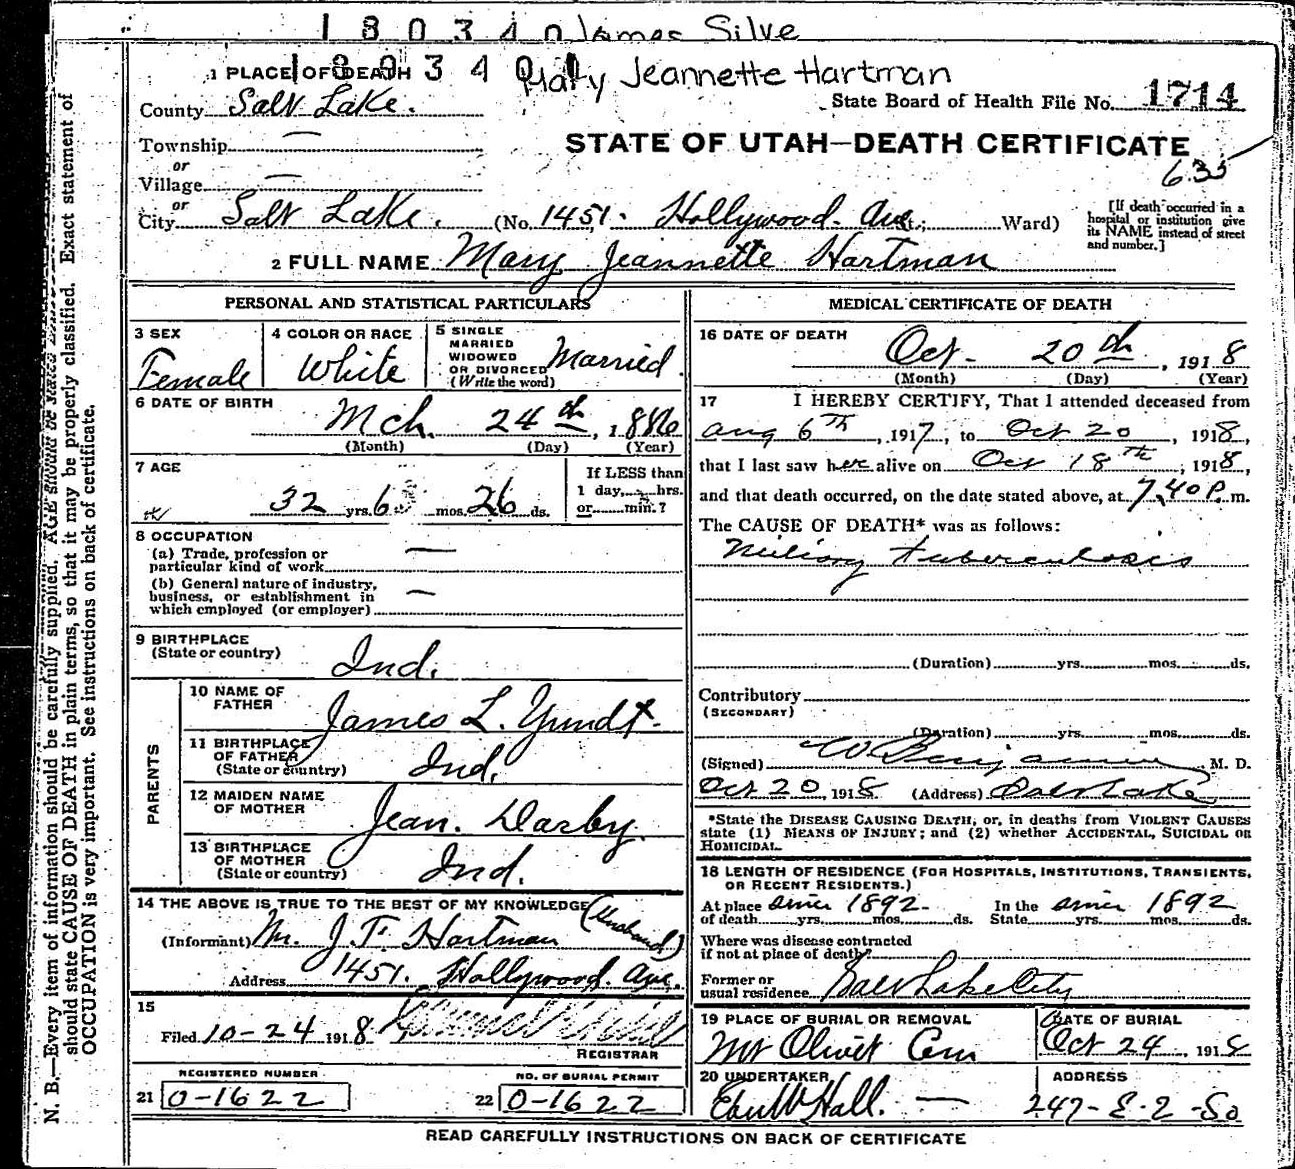 1 8 0 3 4 0 James Silve
1 8 0 3 4 0 Mary Jeannette Hartman
1 PLACE OF DEATH
County Salt Lake.
State Board of Health File No. 1714
STATE OF UTAH—DEATH CERTIFICATE
Township —
or
Village —
635
or
City Salt Lake. (No. 1451. Hollywood. Ave. St.; Ward)
[If death occurred in a
hospital or institution give
its NAME instead of street
and number.]
2 FULL NAME Mary Jeannette Hartman
PERSONAL AND STATISTICAL PARTICULARS
3 SEX
Female
4 COLOR OR RACE
White
5 SINGLE
MARRIED
WIDOWED
OR DIVORCED
(Write the word)
Married.
6 DATE OF BIRTH
Mch. 24th, 1886
(Month) (Day) (Year)
7 AGE
32 yrs. 6 mos. 26 ds.
If LESS than
1 day, hrs.
or min.?
8 OCCUPATION
(a) Trade, profession or
particular kind of work —
(b) General nature of industry,
business, or establishment in
which employed (or employer) —
9 BIRTHPLACE
(State or country)
Ind.
PARENTS
10 NAME OF
FATHER
James L. Yundt.
11 BIRTHPLACE
OF FATHER
(State or country)
Ind.
12 MAIDEN NAME
OF MOTHER
Jean. Darby.
13 BIRTHPLACE
OF MOTHER
(State or country)
Ind.
14 THE ABOVE IS TRUE TO THE BEST OF MY KNOWLEDGE
(Husband)
(Informant) Mr. J. T. Hartman
Address 1451. Hollywood. Ave.
15
Filed 10-24 1918
REGISTRAR
REGISTERED NUMBER
21 0-1622
NO. OF BURIAL PERMIT
22 0-1622
MEDICAL CERTIFICATE OF DEATH
16 DATE OF DEATH
Oct- 20th, 1918
(Month) (Day) (Year)
17 I HEREBY CERTIFY, That I attended deceased from
Aug 6th, 1917, to Oct 20, 1918,
that I last saw her alive on Oct 18th, 1918,
and that death occurred, on the date stated above, at 7.40 P. m.
The CAUSE OF DEATH* was as follows:
Miliary tuberculosis
(Duration) yrs. mos. ds.
Contributory
(SECONDARY)
(Duration) yrs. mos. ds.
(Signed) W Benjamin M. D.
Oct 20, 1918 (Address) Salt Lake
*State the DISEASE CAUSING DEATH, or, in deaths from VIOLENT CAUSES
state (1) MEANS OF INJURY; and (2) whether ACCIDENTAL, SUICIDAL OR
HOMICIDAL.
18 LENGTH OF RESIDENCE (FOR HOSPITALS, INSTITUTIONS, TRANSIENTS,
OR RECENT RESIDENTS.)
At place since 1892- In the since 1892
of death yrs. mos. ds. State yrs. mos. ds.
Where was disease contracted
if not at place of death?
Former or
usual residence Salt Lake City
19 PLACE OF BURIAL OR REMOVAL
Mt Olivet Cem
DATE OF BURIAL
Oct 24, 1918
20 UNDERTAKER
Eber W Hall. —
ADDRESS
247-E-2-So
READ CAREFULLY INSTRUCTIONS ON BACK OF CERTIFICATE
N. B.—Every item of information should be carefully supplied. AGE should be stated Exact statement of
should state CAUSE OF DEATH in plain terms, so that it may be properly classified.
OCCUPATION is very important. See instructions on back of certificate.